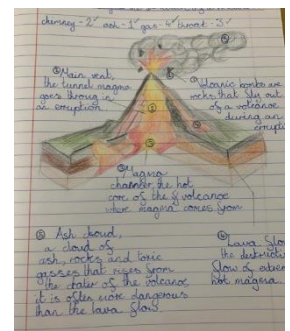 chimney - 2 ✓ ash - 1 ✓ gas - 4 ✓ throat - 3 ✓
① Main vent,
the tunnel magma
goes through in
an eruption
② Volcanic bombs are
rocks that fly out
of a volcano
during an
erupti
③ Magma
chamber, the hot
core of the volcano
where magma comes from
⑤ Ash cloud,
a cloud of
ash, rocks and toxic
gasses that rises from
the crater of the volcano
it is often more dangerous
than the lava flow
⑥ Lava flow
the destructi
flow of extrem
hot magma.